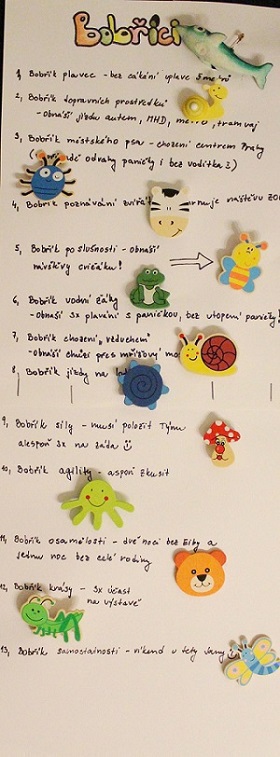 Bobříci
1, Bobřík plavec - bez cákání uplave 5 metrů
2, Bobřík dopravních prostředků
- obnáší jízdu autem, MHD, metro, tramvaj
3, Bobřík městského psa - chození centrem Prahy
odrahy paničky i bez vodítka?)
4, Bobřík poznávání zvířá
5, Bobřík poslušnosti - obnáší
návštěvy cvičáku!
6, Bobřík vodní záhy
- obnáší 3x plavání s paničkou, bez utopení paničky!
7, Bobřík chození „vzduchem“
- obnáší chůzi přes mřížový mo
8, Bobřík jízdy na
9, Bobřík síly - musí položit Týmu
alespoň 3x na záda
10, Bobřík agility - aspoň zkusit
11, Bobřík osamělosti - dvě noci bez Elby a
jednu noc bez celé rodiny
12, Bobřík krásy - 3x účast
na výstavě
13, Bobřík samostatnosti - víkend u tety Jany